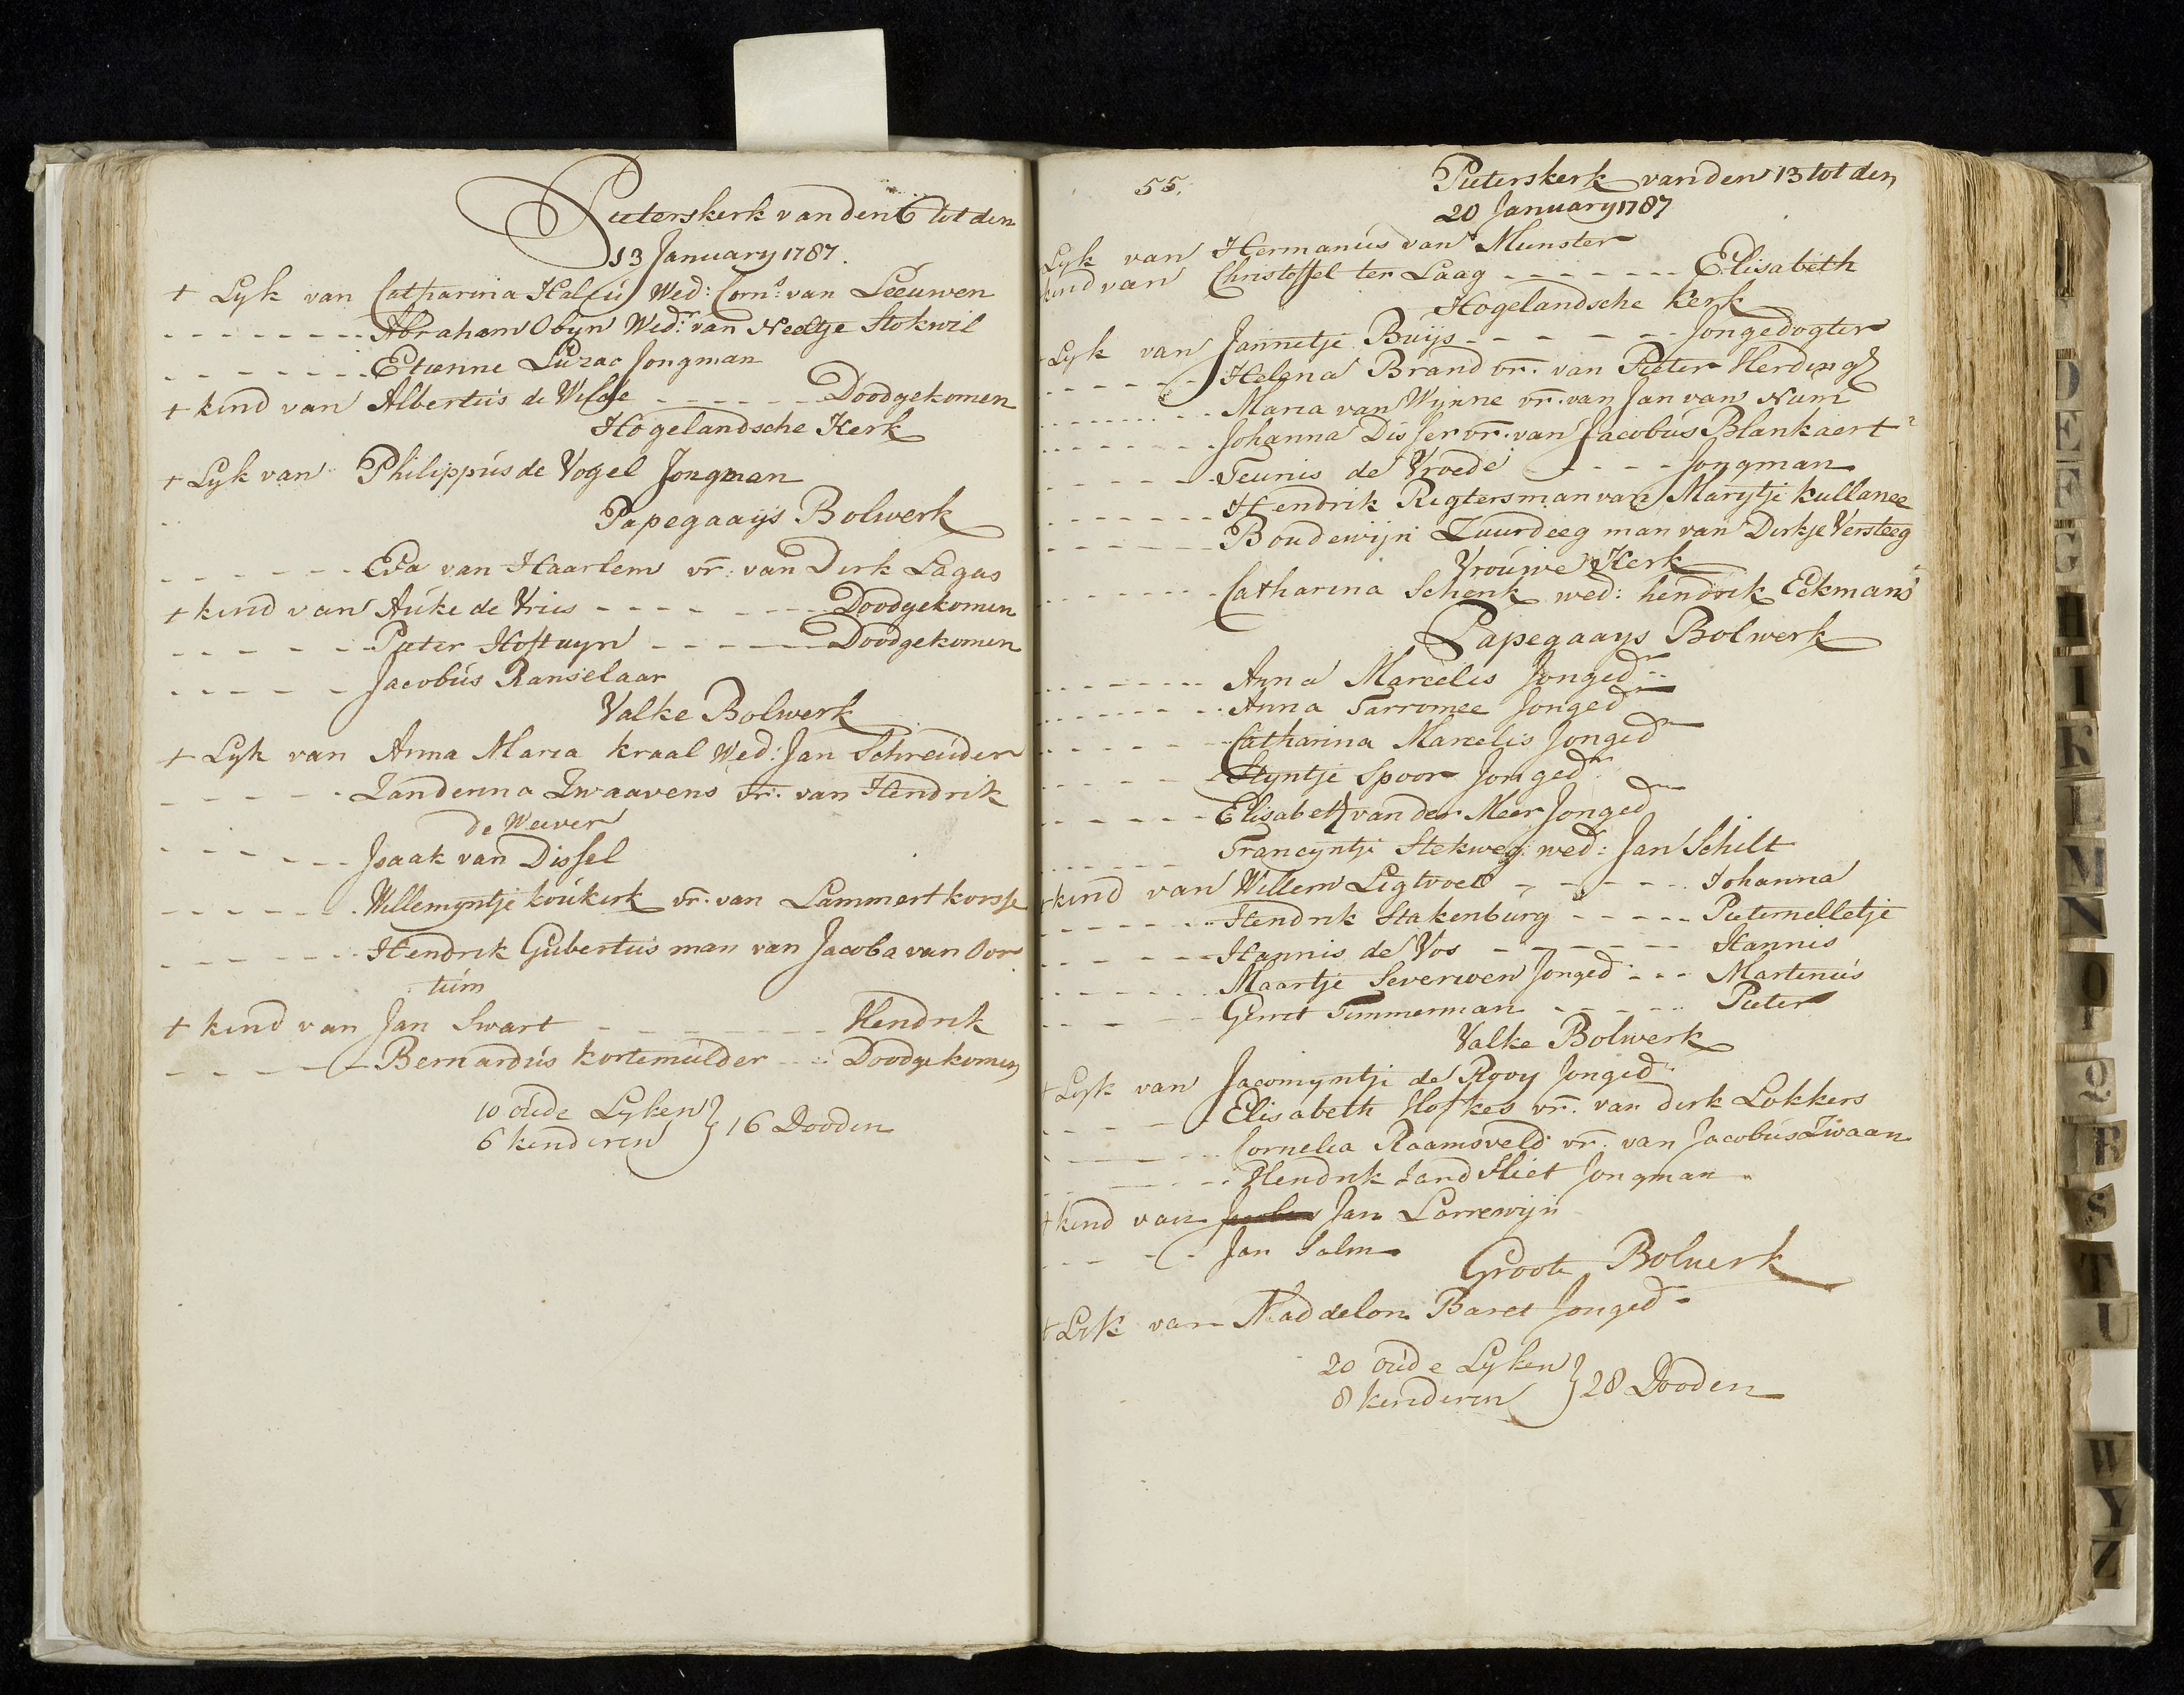 Pieterskerk van den 6 tot den
13 January 1787.
+ Lyk van Catharina Halfú Wed: Corns: van Leeuwen
- - - - - - - Abraham Obyn Wedr: van Neeltje Stokvil
- - - - - - - Etienne Luzac Jongman
+ kind van Albertús de Wilde - - - - - - Doodgekomen
Hogelandsche Kerk
+ Lyk van Philippús de Vogel Jongman
Papegaays Bolwerk
- - - - - - - Eva van Haarlem vr: van Dirk Lagas
+ kind van Auke de Vries - - - - - - - Doodgekomen
- - - - - - Pieter Hoftuyn - - - - - Doodgekomen
- - - - - - Jacobús Ranselaar
Valke Bolwerk
+ Lyk van Anna Maria Kraal Wed: Jan Schreúder
- - - - - - Zandenna Zwaavens vr: van Hendrik
de Wewer
- - - - - - - Isaak van Dissel
- - - - - - Willemyntje koúkerk vr: van Lammert korsse
- - - - - - - Hendrik Gúbertús man van Jacoba van Oor
túm
+ kind van Jan Swart - - - - - - - - Hendrik
- - - - - - Bernardús kortemúlder - - Doodgekomen
10 oúde Lyken } 16 Dooden
6 kinderen
55. Pieterskerk van den 13 tot den
20 January 1787
Lyk van Hermanús van Munster
kind van Christoffel ter Laag - - - - - - - Elisabeth
Hogelandsche Kerk
+ Lyk van Jannetje Buijs - - - - - - Jongedogter
- - - - - - Helena Brand vr: van Pieter Herdingh
- - - - - - Maria van Wynne vr: van Jan van Num
- - - - - - Johanna Disser vr: van Jacobús Blankaert
- - - - - - Teunis de Vroede - - - - Jongman
- - - - - - Hendrik Rigters man van Marijtje kullanee
- - - - - - Boudewijn Zuurdeeg man van Dirkje Versteeg
Vroúwe Kerk
- - - - - - - Catharina Schenk wed: hendrik Eckmans
Papegaays Bolwerk
- - - - - - - Anna Marcelis Jongedr
- - - - - - - Anna Tarromee Jongedr
- - - - - - - Catharina Marcelis Jongedr
- - - - - Styntje Spoor Jongedr
- - - - - - Elisabeth van der Meer Jonged
- - - - - - Francyntje Stekweg: wed: Jan Schilt
+ kind van Willem Ligtvoet - - - - - Johanna
- - - - - - - Hendrik Stakenbúrg - - - - - Pieternelletje
- - - - - - Hannis de Vos - - - - - - Hannis
- - - - - - Maartje Severwen Jonged - - - Martinús
- - - - - Gerret Timmerman - - - - - Pieter
Valke Bolwerk
+ Lyk van Jacomyntje de Rooy Jonged:
- - - - - Elisabeth Hofkes vr: van dirk Lokkers
- - - - - - Cornelia Raamsveld vr: van Jacobús Zwaan
- - - - - - Hendrik Zand Hiet Jongman
+ kind van Jan Lorrewijn
- - - - - Jan Salm
Groote Bolwerk
+ Lyk van Maddelon Baret Jonged
20 oúde Lyken } 28 Dooden
8 kinderen
D
E
F
G
H
I
K
L
M
N
O
P
Q
R
S
T
U
W
Y
Z